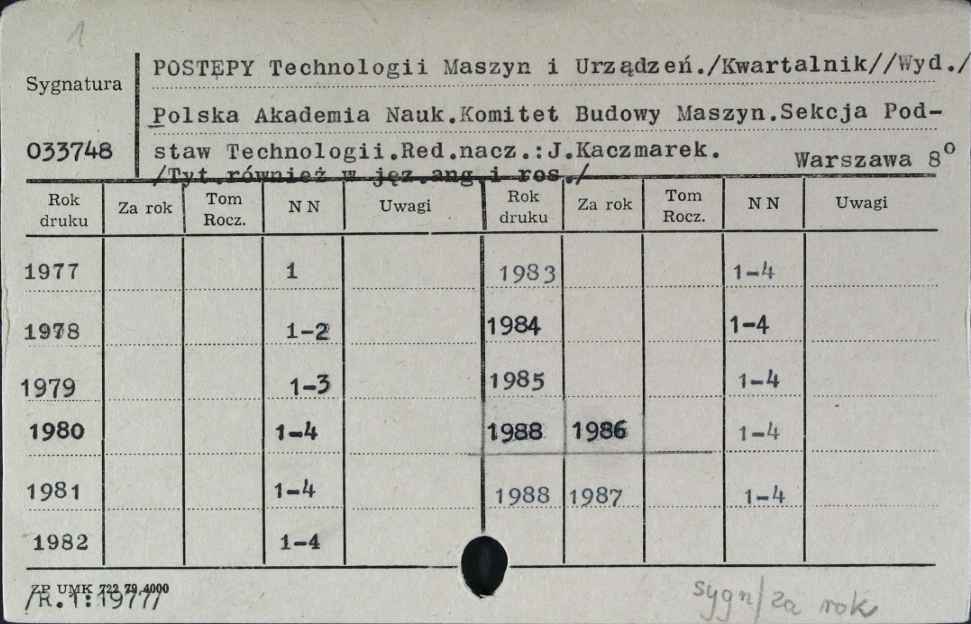 1
Sygnatura
033748
POSTĘPY Technologii Maszyn i Urządzeń./Kwartalnik//Wyd./
Polska Akademia Nauk.Komitet Budowy Maszyn.Sekcja Pod-
staw Technologii.Red.nacz.:J.Kaczmarek.
Warszawa 8°
/Tyt.również w jęz.ang i ros./
Rok druku Za rok Tom Rocz. N N Uwagi Rok druku Za rok Tom Rocz. N N Uwagi
1977 1 1983 1-4
1978 1-2 1984 1-4
1979 1-3 1985 1-4
1980 1-4 1988 1986 1-4
1981 1-4 1988 1987 1-4
1982 1-4
ZP UMK 722 79 4000
/R.1:1977/
sygn/za rok